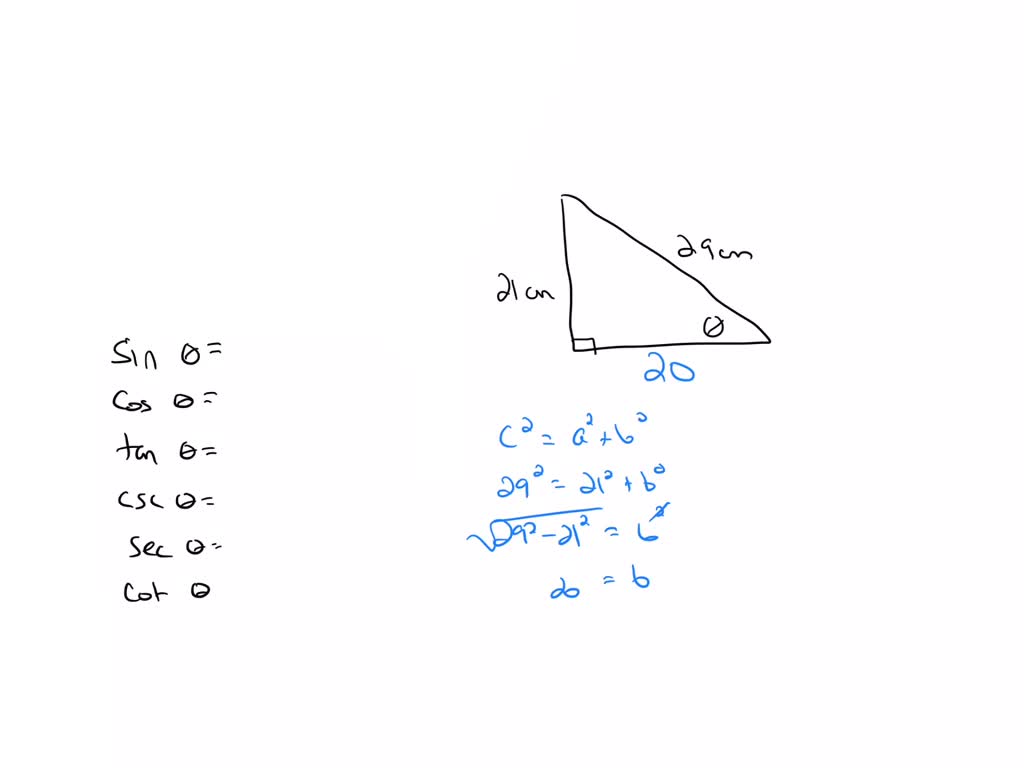 29cm
21cm
θ
20
sin θ=
cos θ=
tan θ=
csc θ=
sec θ=
cot θ
c² = a² + b²
29² = 21² + b²
√29² - 21² = b²
20 = b